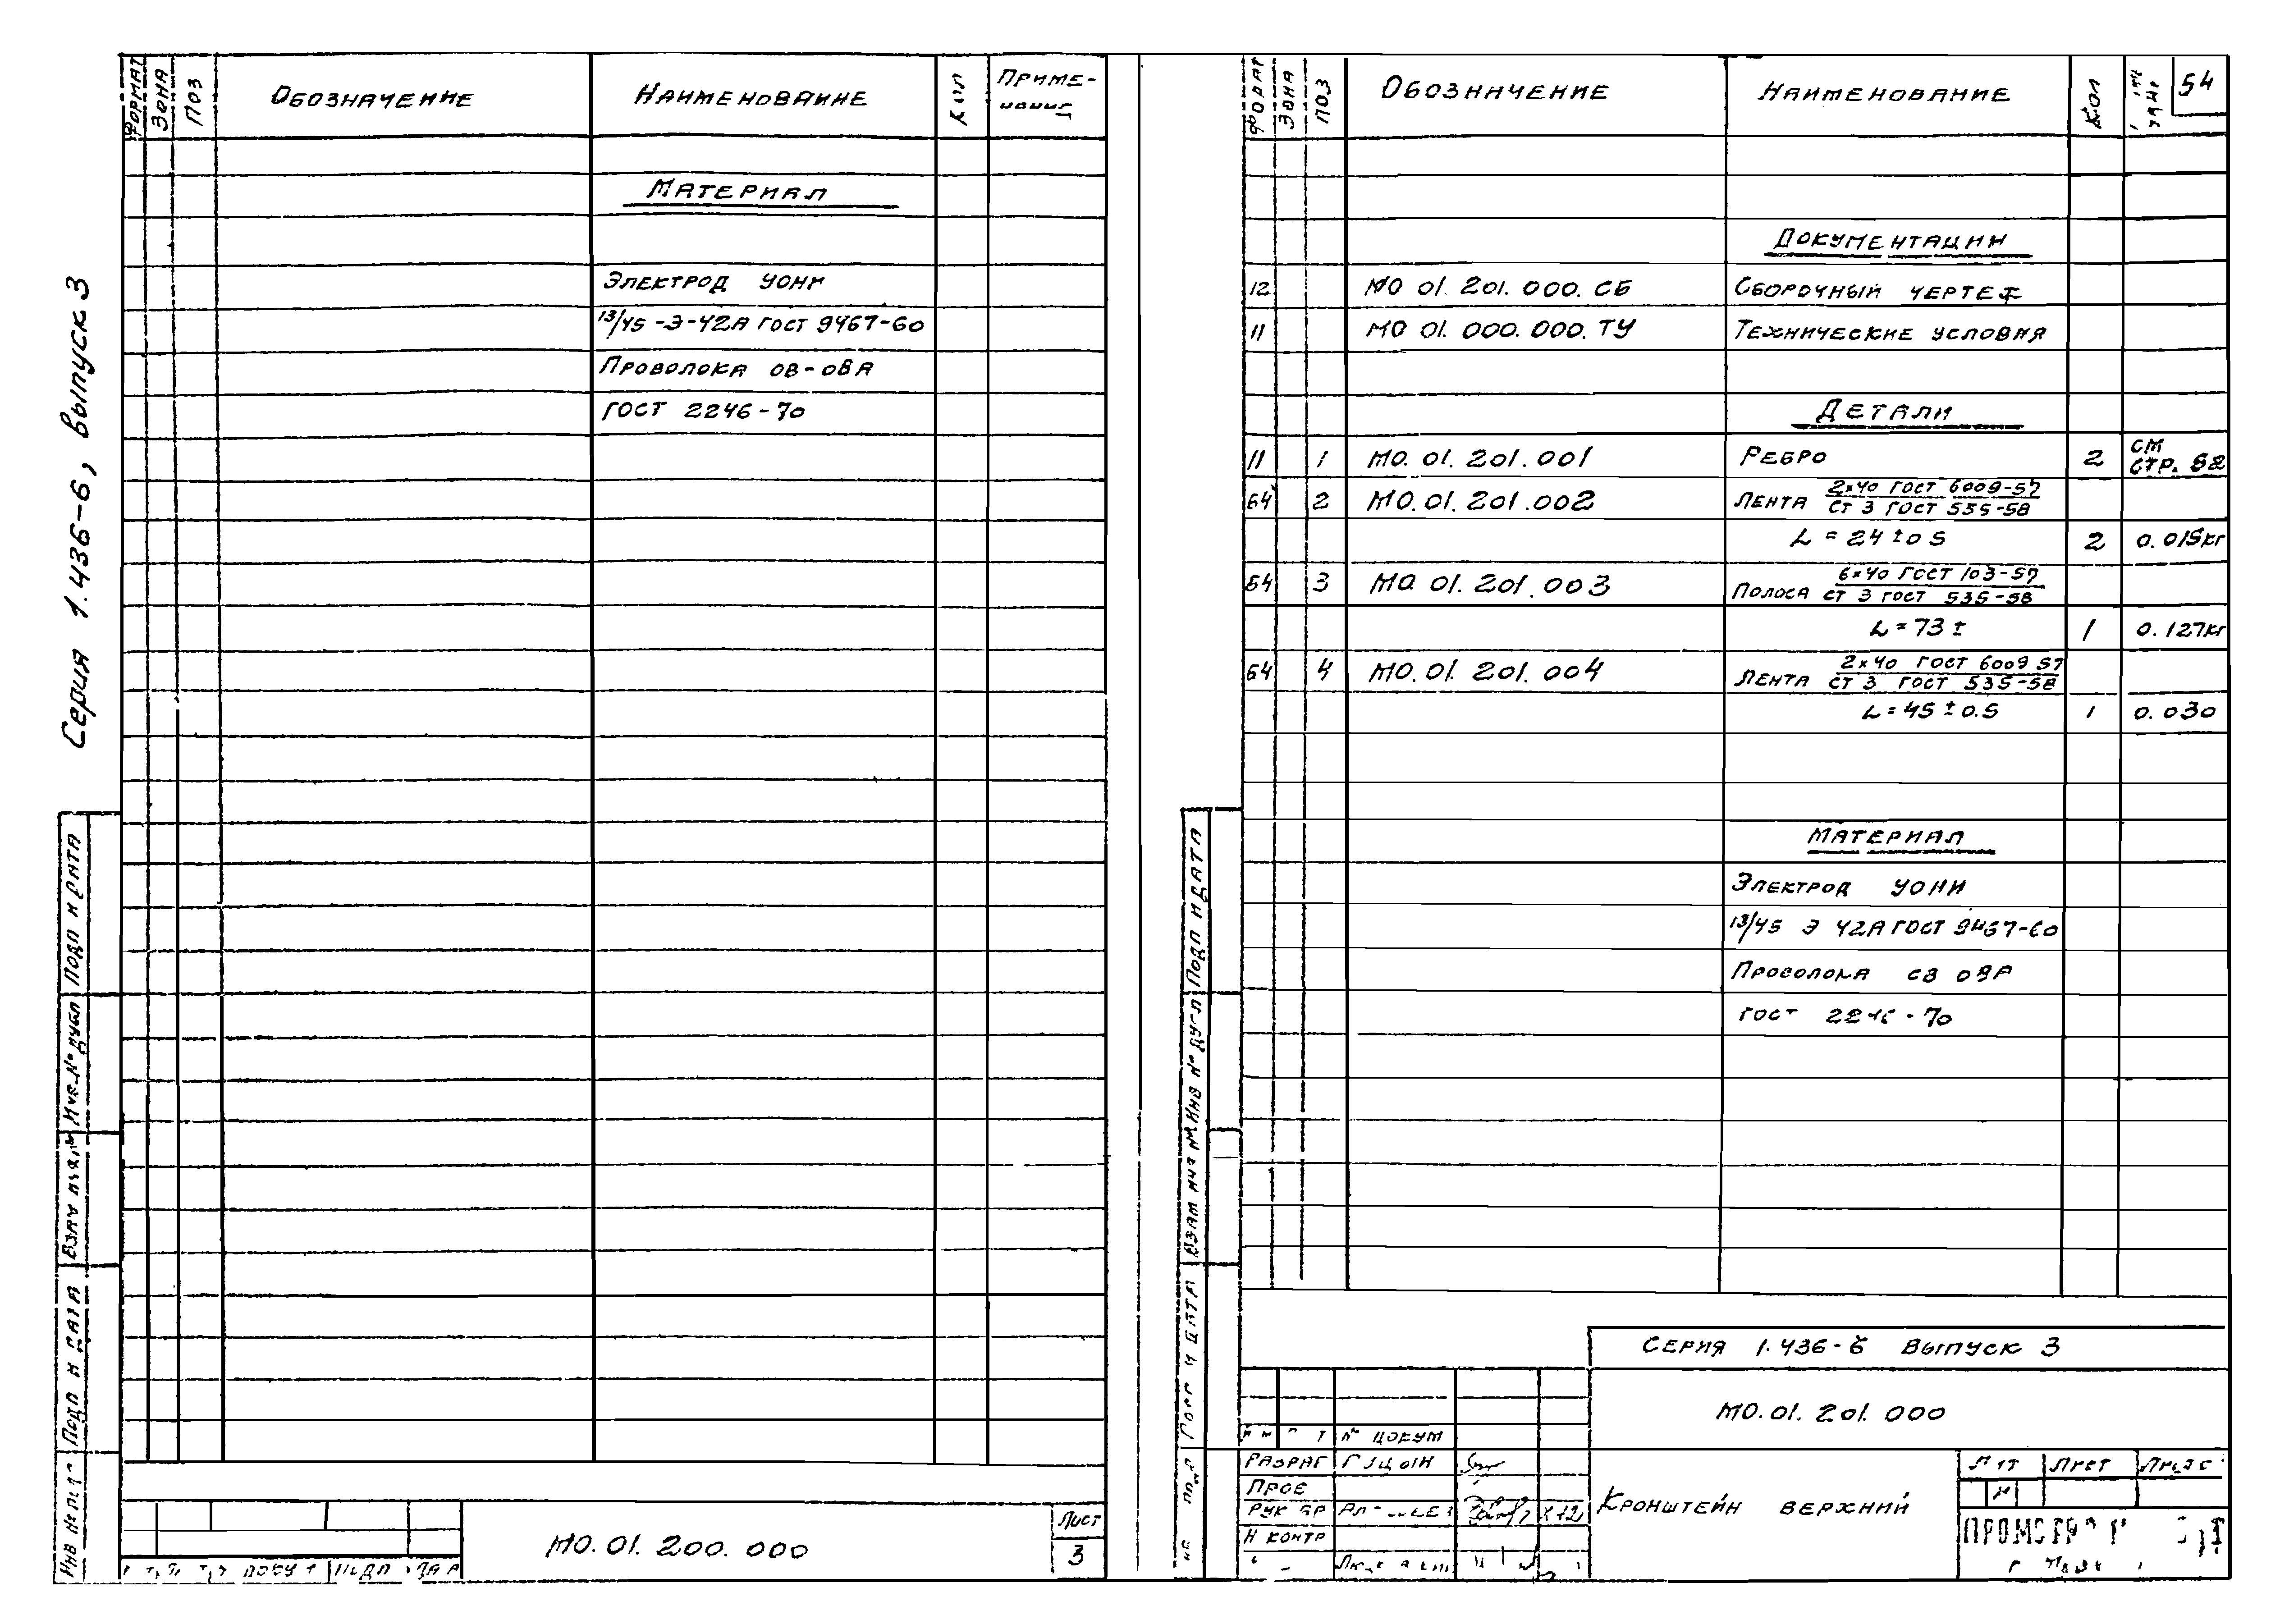 Серия 1.436-6, выпуск 3
ФОРМАТ ЗОНА ПОЗ ОБОЗНАЧЕНИЕ НАИМЕНОВАНИЕ КОЛ ПРИМЕ-
МАТЕРИАЛ
ЭЛЕКТРОД УОНИ
13/45-Э-42А ГОСТ 9467-60
ПРОВОЛОКА ОВ-08А
ГОСТ 2246-70
ПОДП И ДАТА
ИНВ № ДУБЛ
ПОДП И ДАТА
МО.01.200.000
ЛИСТ
3
54
ФОРМАТ ЗОНА ПОЗ ОБОЗНАЧЕНИЕ НАИМЕНОВАНИЕ КОЛ
ДОКУМЕНТАЦИИ
12 МО 01.201.000.СБ СБОРОЧНЫЙ ЧЕРТЕЖ
11 МО 01.000.000.ТУ ТЕХНИЧЕСКИЕ УСЛОВИЯ
ДЕТАЛИ
11 1 МО.01.201.001 РЕБРО 2 СМ СТР. 52
64 2 МО.01.201.002 ЛЕНТА 2×40 ГОСТ 6009-57
СТ 3 ГОСТ 535-58
L = 24 ±0 5 2 0.015кг
64 3 МО 01.201.003 ПОЛОСА 6×40 ГОСТ 103-57
СТ 3 ГОСТ 535-58
L = 73 ± 1 0.127кг
64 4 МО.01.201.004 ЛЕНТА 2×40 ГОСТ 6009 57
СТ 3 ГОСТ 535-58
L = 45 ± 0.5 1 0.030
МАТЕРИАЛ
ЭЛЕКТРОД УОНИ
13/45 Э 42А ГОСТ 9467-60
ПРОВОЛОКА СВ 08А
ГОСТ 2246-70
ПОДП И ДАТА
СЕРИЯ 1.436-6 ВЫПУСК 3
МО.01.201.000
№ ДОКУМ
РАЗРАБ
ПРОВ
РУК БР
Н КОНТР
КРОНШТЕЙН ВЕРХНИЙ
ЛИТ ЛИСТ ЛИСТОВ